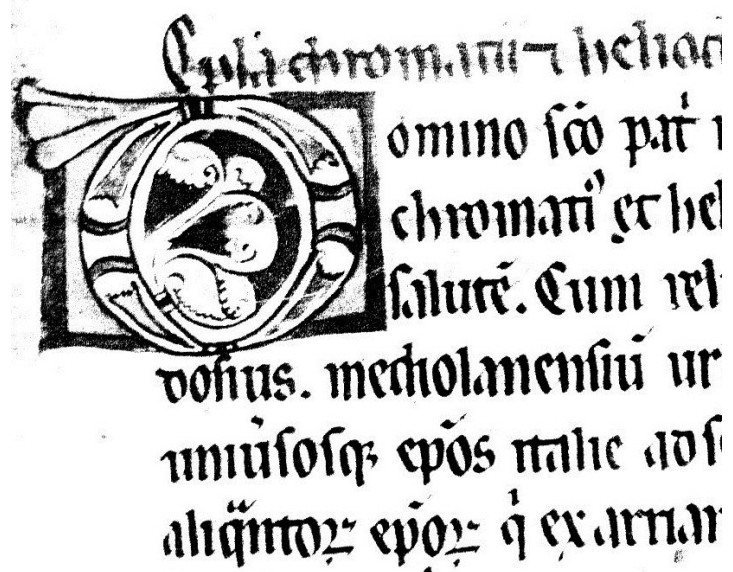 Ep̄la chromatii ⁊ heliod
Domino sc̄o pat̄
chromati᷒ et hel
salutē. Cum rel
dosius. mediolanensiū ur
uniūsosq; ep̄os italie ad s
aliq̄ntoꝝ ep̄oꝝ q̇ ex arrian